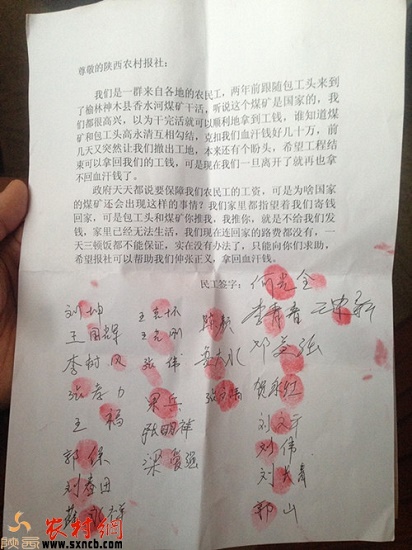 尊敬的陕西农村报社:
我们是一群来自各地的农民工,两年前跟随包工头来到
了榆林神木县香水河煤矿干活,听说这个煤矿是国家的,我
们都很高兴,以为干完活就可以顺利地拿到工钱,谁知道煤
矿和包工头高永清互相勾结,克扣我们血汗钱好几十万,前
几天又突然让我们撤出工地,本来还有个盼头,希望工程结
束可以拿回我们的工钱,可是现在我们一旦离开了就再也拿
不回血汗钱了。
政府天天都说要保障我们农民工的工资,可是为啥国家
的煤矿还会出现这样的事情?我们家里都指望着我们寄钱
回家,可是包工头和煤矿你推我,我推你,就是不给我们发
钱,家里已经无法生活,我们现在连回家的路费都没有,一
天三顿饭都不能保证,实在没有办法了,只能向你们求助,
希望报社可以帮助我们伸张正义,拿回血汗钱。
民工签字:
刘坤
王国辉
李树风
张孝力
王福
郭保
张伟
梁兵
张明祥
梁爱强
邓爱强
刘文平
刘伟
郭山
陕西
农村网
www.sxncb.com